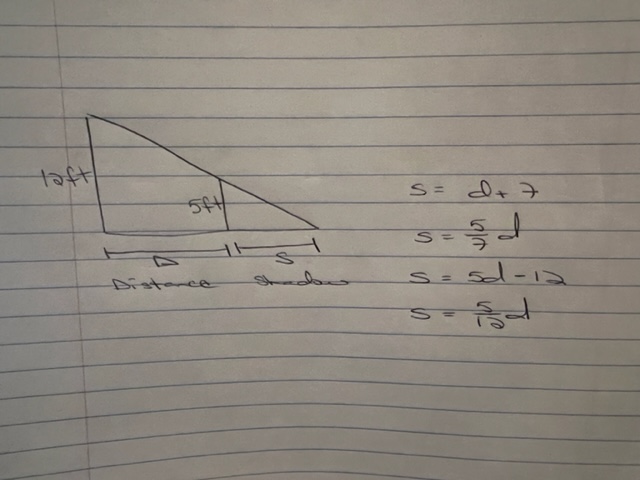 12ft
5ft
D
S
Distance Shadow
S = d + 7
S = 5/7 d
S = 5d - 12
S = 5/12 d